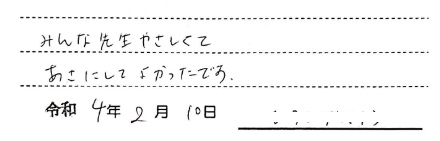 みんな先生やさしくて
あさにしてよかったです.
令和 4年 2月 10日